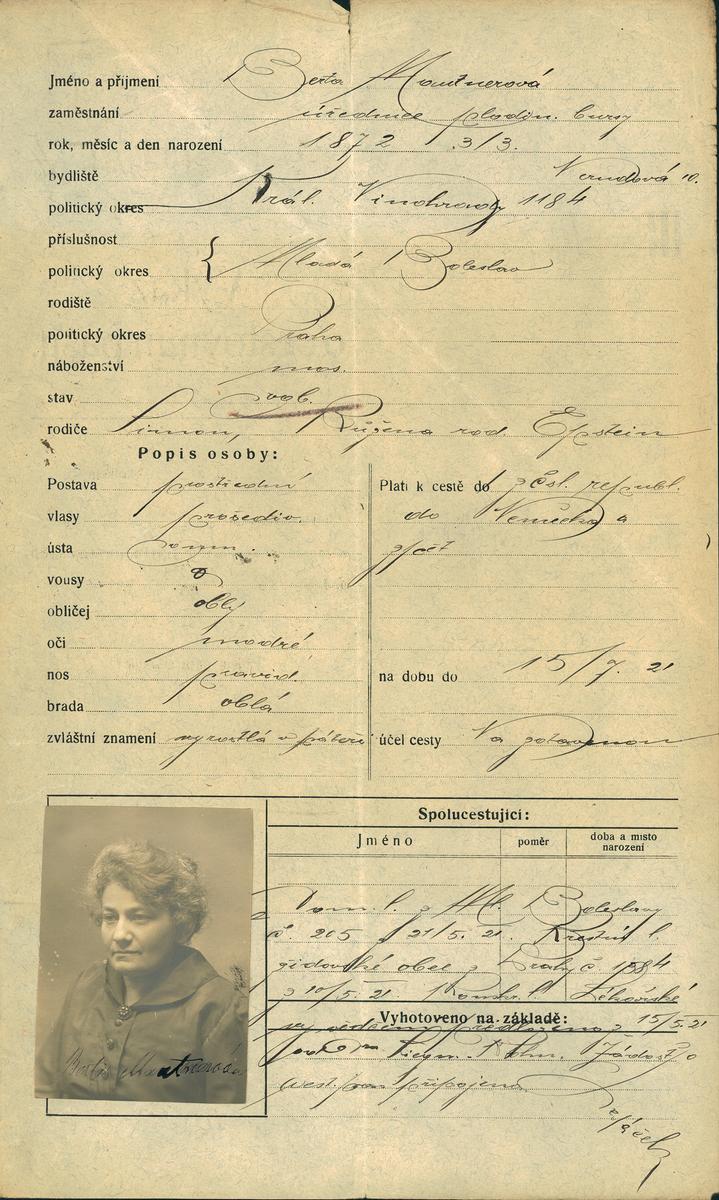 Jméno a příjmení Berta Mautnerová
zaměstnání úřednice plodin. bursy
rok, měsíc a den narození 1872 3/3.
bydliště Nerudová 10.
politický okres Král. Vinohrady 1184
příslušnost
politický okres { Mladá Boleslav
rodiště
politický okres Praha
náboženství mos.
stav svob.
rodiče Simon, Růžena rod. Epstein
Popis osoby:
Postava prostřední
vlasy prošediv.
ústa
vousy 0
obličej oblý
oči modré
nos pravid.
brada oblá
zvláštní znamení vyrostlá v páteři
Platí k cestě do z čsl. republ.
do Německa a
zpět
na dobu do 15/7. 21
účel cesty Na zotavenou
Spolucestující:
Jméno poměr doba a místo narození
Dom. l. z Ml. Boleslavy
č. 205 z 21/5. 21. Křestní l.
židovské obce z Prahy č. 1584
z 10/5. 21 Lékařské
Vyhotoveno na základě:
vysvědčení předloženo z 15/5. 21
Žádost o
připojena
Berta Mautnerová